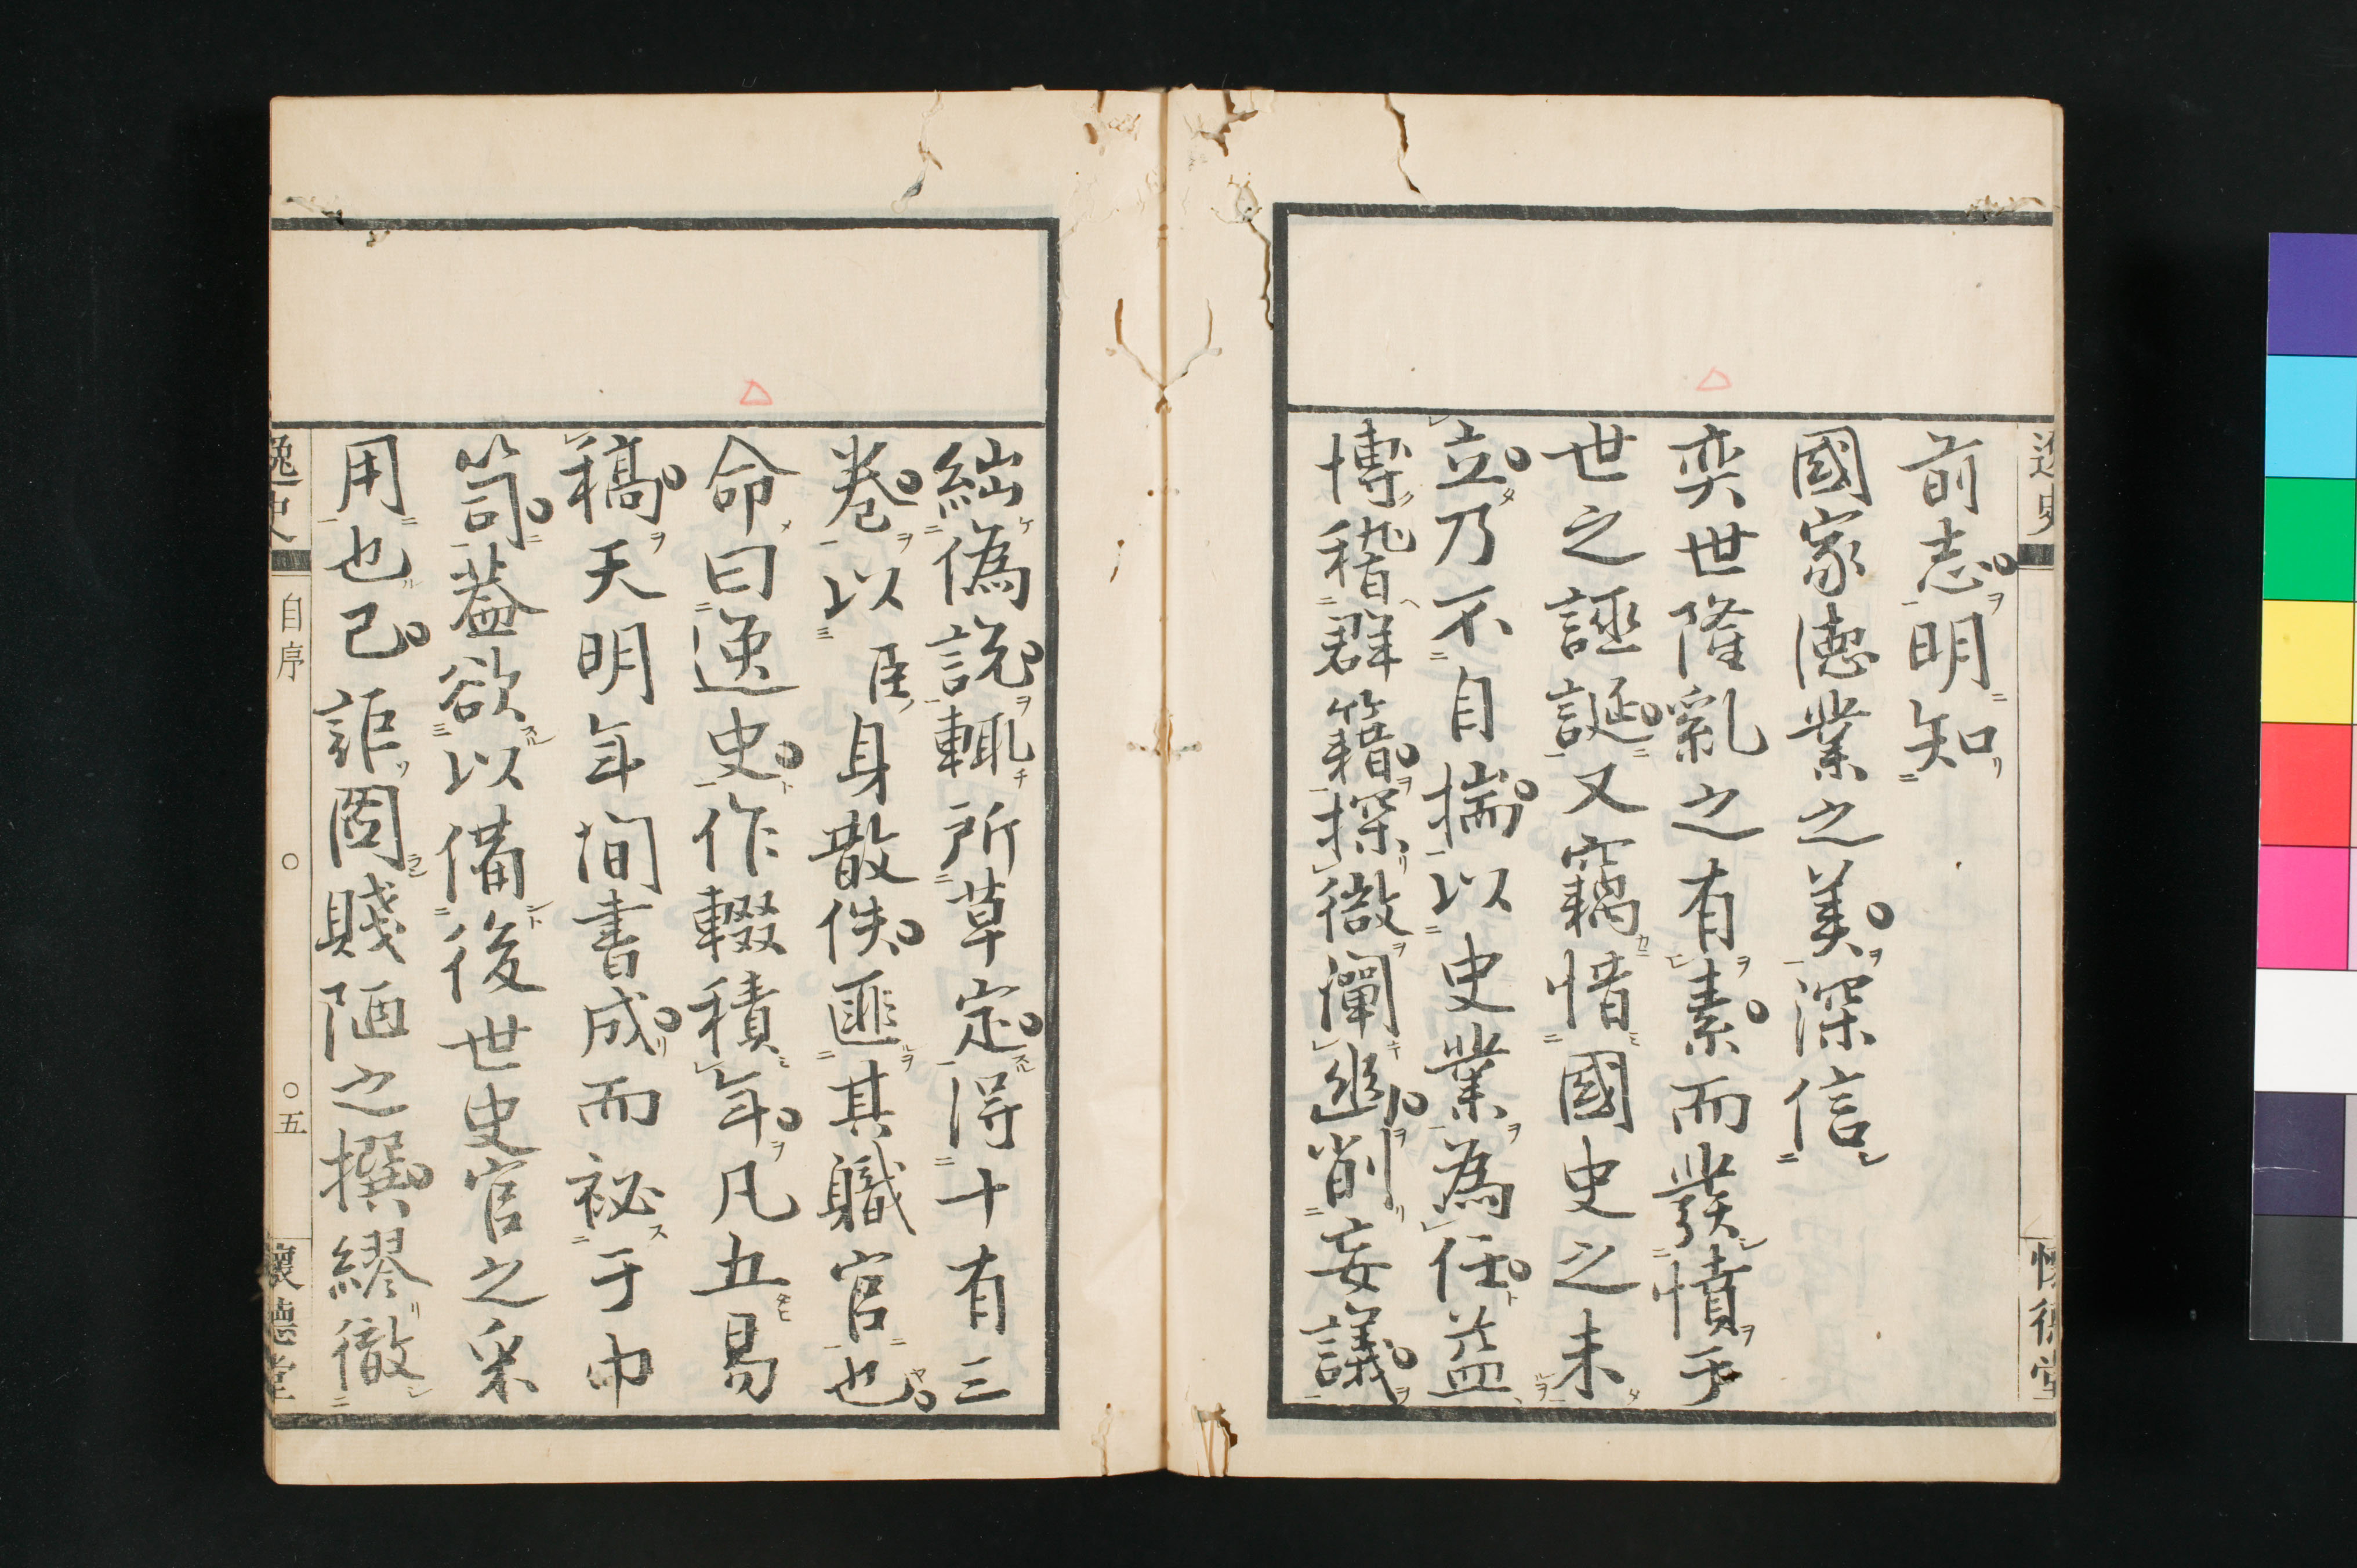 逸史
懷德堂
前志。明知
國家德業之美。深信
奕世隆亂之有素。而發憤乎
世之誣誕。又竊惜國史之未
立。乃不自揣。以史業為任。益
博稽群籍。探微闡幽。削妄議。
絀偽說。輒所草定。得十有三
卷。以臣身散佚。匪其職官也。
命曰逸史。作輟積年。凡五易
稿。天明年間書成。而祕于巾
笥。蓋欲以備後世史官之采
用也已。詎圖賤陋之撰。繆徹
逸史
自序
○
○五
懷德堂